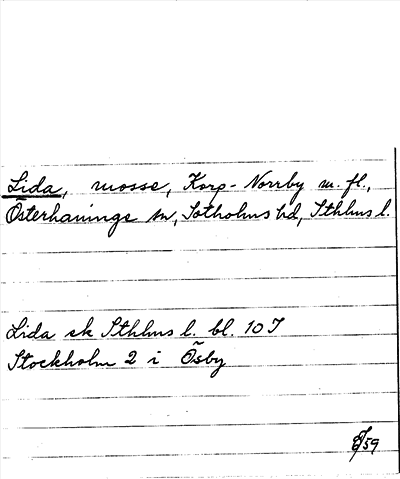 Lida, mosse, Korp-Norrby m. fl.,
Österhaninge sn, Sotholms hd, Sthlms l.
Lida sk Sthlms l. bl. 10 I
Stockholm 2 i Ösby
59